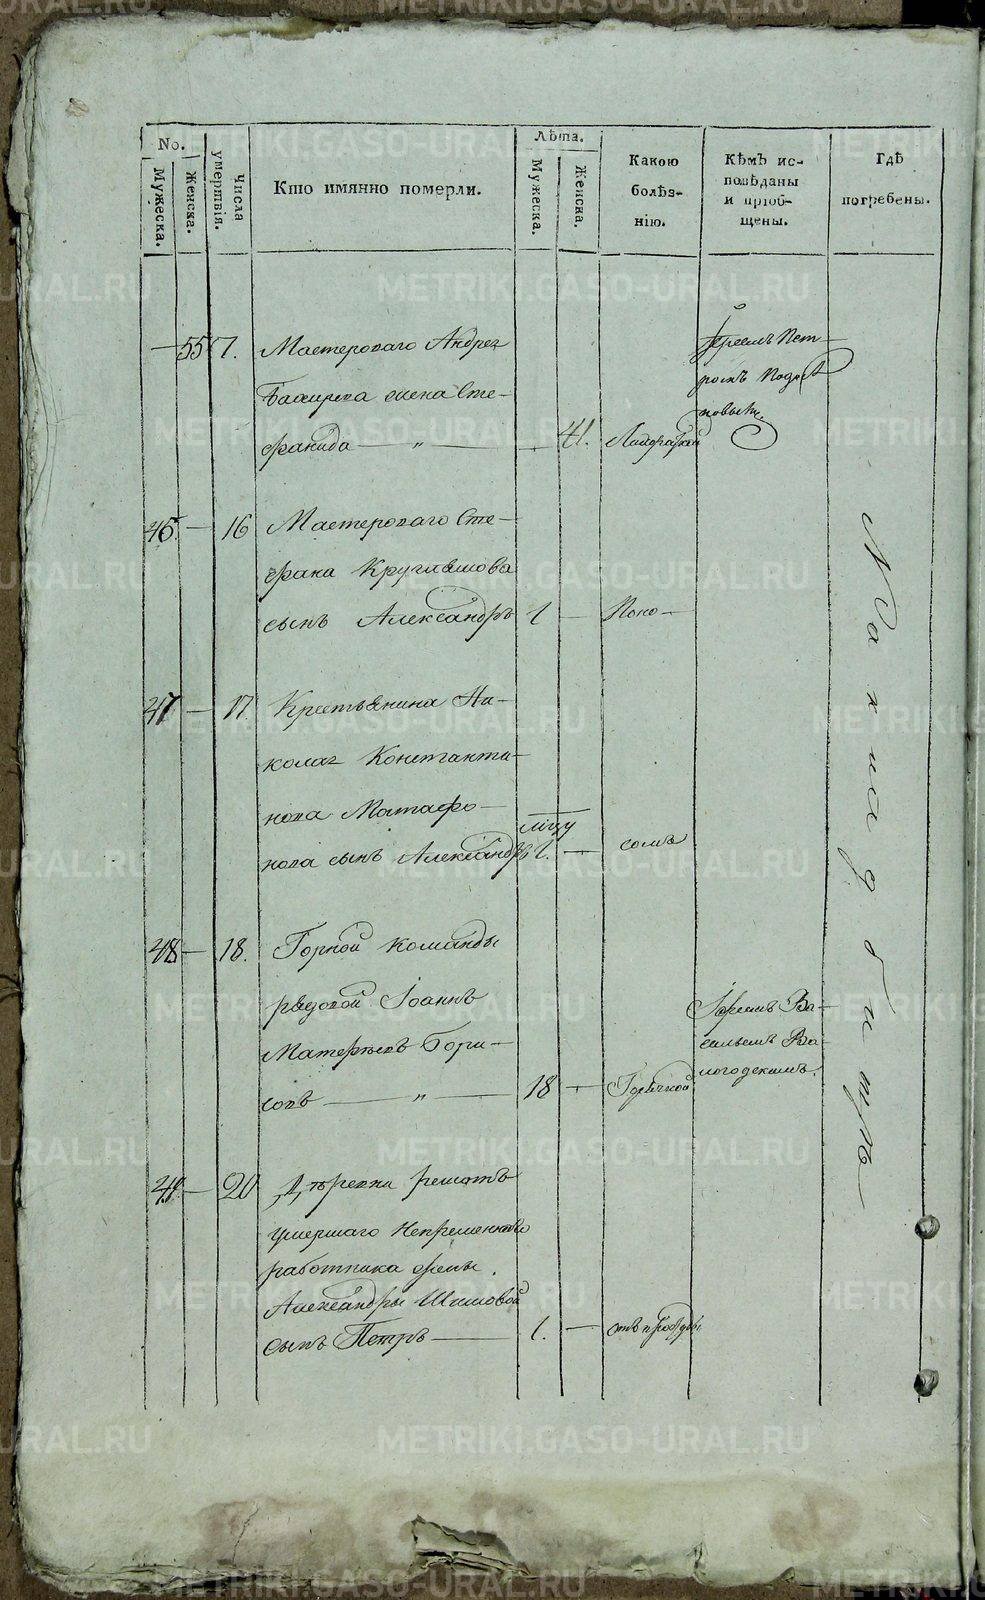 No.
Мужеска.
Женска.
Числа умертвія.
Кто имянно померли.
Лѣта.
Мужеска.
Женска.
Какою
болѣз-
нію.
Кѣмъ ис-
повѣданы
и пріоб-
щены.
Гдѣ
погребены.
— 55 7. Мастероваго Андрея
жена Сте-
фанида — „ — 41.
Іереемъ Пет-
ромъ
46. — 16 Мастероваго Сте-
фана Кругляшова
сынъ Александръ 1 — Поно-
47 — 17. Крестьянина Ни-
колая Константи-
нова Матафо-
нова сынъ Александръ мцу 1. — сомъ
48 — 18. Горной команды
рядовой Іоаннъ
Бори-
совъ — „ — 18 — Горячкой
Іереемъ Ва-
сильемъ Во-
логодскимъ.
49 — 20 Деревни Решотъ
умершаго Непременнаго
работника жены
Александры Шиловой
сынъ Петръ — 1. —
На кладбищѣ
METRIKI.GASO-URAL.RU